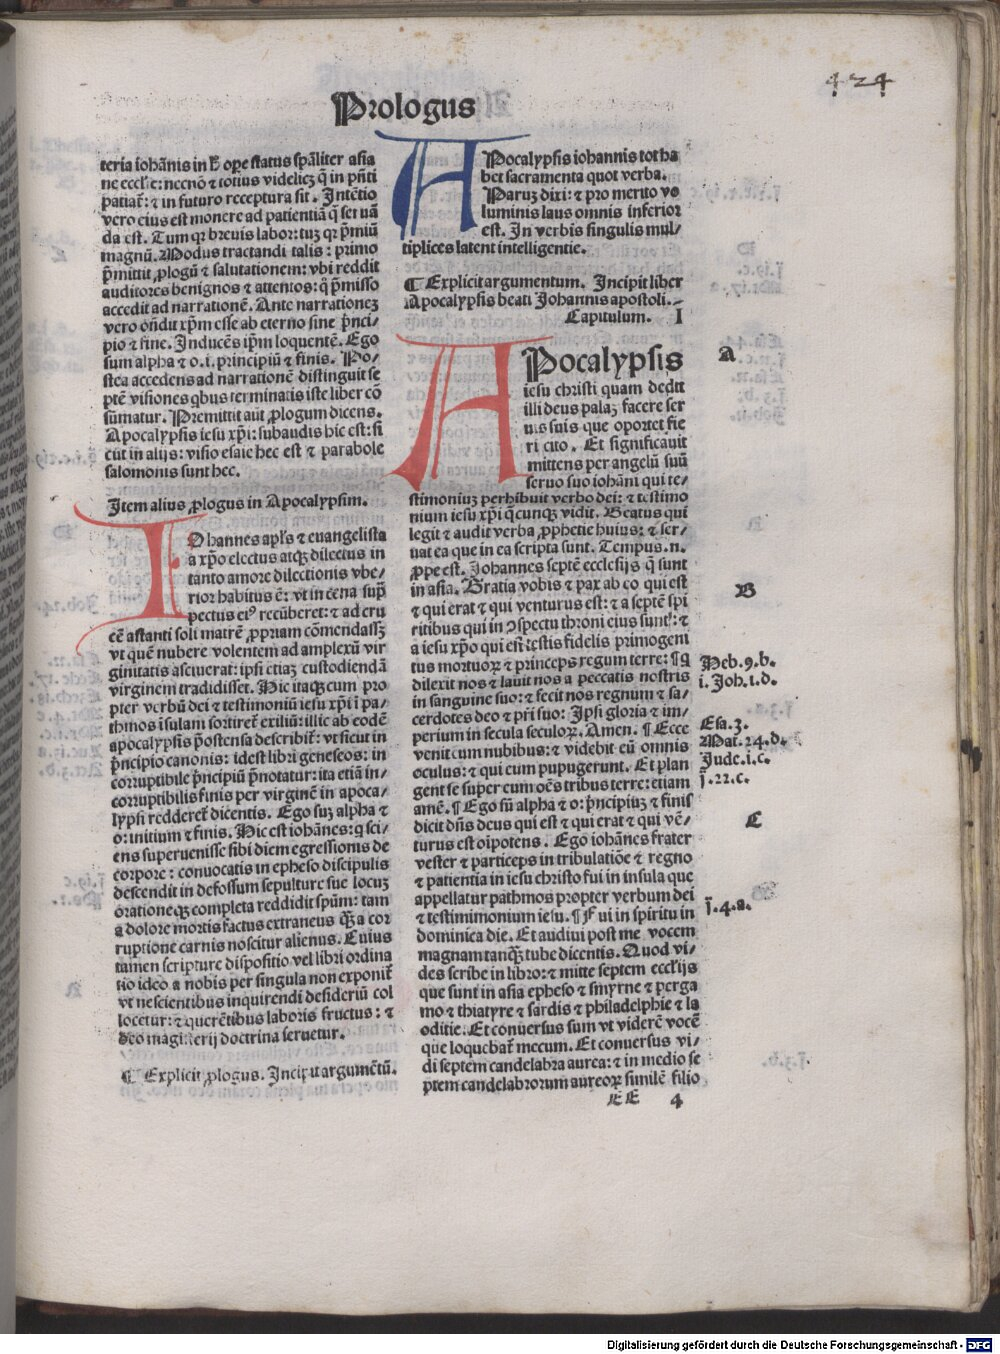 424
Prologus
teria ioh̄anis in h̄ ope status sp̄aliter asia
ne eccl'e: necnō ⁊ totius videlicꝫ q̄ in p̄nti
patiat᷑: ⁊ in futuro receptura sit. Intētio
vero eius est monere ad patientiā q̄ seruā
da est. Tum qꝛ breuis labor: tuꝫ qꝛ p̄miū
magnū. Modus tractandi talis: primo
p̄mittit ꝓlogū ⁊ salutationem: vbi reddit
auditores benignos ⁊ attentos: q̄ p̄misso
accedit ad narrationē. Ante narrationeꝫ
vero oñdit xp̄m esse ab eterno sine p̄nci/
pio ⁊ fine. Inducēs ip̄m loquentē. Ego
sum alpha ⁊ o.i. principiū ⁊ finis. Po/
stea accedens ad narrationē distinguit se
ptē visiones qbus terminatis iste liber cō
sūmatur. Premittit aūt ꝓlogum dicens.
Apocalypsis iesu xp̄i: subaudis hic est: si
cut in alijs: visio esaie hec est ⁊ parabole
salomonis sunt hec.
Item alius ꝓlogus in Apocalypsim.
IOhannes apl's ⁊ euangelista
a xp̄o electus atqꝫ dilectus in
tanto amore dilectionis vbe/
rior habitus ē: vt in cena sup̄
pectus eiꝰ recūberet: ⁊ ad cru
cē astanti soli matrē ꝓpriam cōmendassꝫ
vt quē nubere volentem ad amplexū vir
ginitatis asciuerat: ipsi etiaꝫ custodiendā
virginem tradidisset. Hic itaqꝫ cum pro
pter verbū dei ⁊ testimoniū iesu xp̄i ī pa
thmos īsulam sortiret᷑ exiliū: illic ab eodē
apocalypsis p̄ostensa describit᷑: vt sicut in
p̄ncipio canonis: idest libri geneseos: in
corruptibile p̄ncipiū p̄notatur: ita etiā in/
corruptibilis finis per virginē in apoca/
lypsi redderet᷑ dicentis. Ego suꝫ alpha ⁊
o: initium ⁊ finis. Hic est iohānes: q sci/
ens superuenisse sibi diem egressionis de
corpore: conuocatis in epheso discipulis
descendit in defossum sepulture sue locuꝫ
orationeqꝫ completa reddidit spūm: tam
a dolore mortis factus extraneus qꝫ a cor
ruptione carnis noscitur alienus. Cuius
tamen scripture dispositio vel libri ordina
tio ideo a nobis per singula non exponit᷑
vt nescientibus inquirendi desideriū col
locetur: ⁊ querētibus laboris fructus: ⁊
deo magisterij doctrina seruetur.
¶ Explicit ꝓlogus. Incipit argumētū.
APocalypsis iohannis tot ha
bet sacramenta quot verba.
Paruꝫ dixi: ⁊ pro merito vo
luminis laus omnis inferior
est. In verbis singulis mul/
tiplices latent intelligentie.
¶ Explicit argumentum. Incipit liber
Apocalypsis beati Johannis apostoli.
Capitulum. I
APocalypsis
iesu christi quam dedit
illi deus palaꝫ facere ser
uis suis que oportet fie
ri cito. Et significauit
mittens per angelū suū
seruo suo iohāni qui te/
stimoniuꝫ perhibuit verbo dei: ⁊ testimo
nium iesu xp̄i q̄cunqꝫ vidit. Beatus qui
legit ⁊ audit verba ꝓphetie huius: ⁊ ser/
uat ea que in ea scripta sunt. Tempus.n.
ꝓpe est. Johannes septē ecclesijs q̄ sunt
in asia. Gratia vobis ⁊ pax ab eo qui est
⁊ qui erat ⁊ qui venturus est: ⁊ a septē spi
ritibus qui in ꝯspectu throni eius sunt: ⁊
a iesu xp̄o qui est testis fidelis primogeni
tus mortuoꝝ ⁊ princeps regum terre: ¶ q
dilexit nos ⁊ lauit nos a peccatis nostris
in sanguine suo: ⁊ fecit nos regnum ⁊ sa/
cerdotes deo ⁊ pr̄i suo: Ipsi gloria ⁊ im/
perium in secula seculoꝝ. Amen. ¶ Ecce
venit cum nubibus: ⁊ videbit eū omnis
oculus: ⁊ qui eum pupugerunt. Et plan
gent se super eum oēs tribus terre: etiam
amē. ¶ Ego sū alpha ⁊ o: p̄ncipiuꝫ ⁊ finis
dicit dn̄s deus qui est ⁊ qui erat ⁊ qui vē/
turus est oīpotens. Ego iohānes frater
vester ⁊ particeps in tribulatiōe ⁊ regno
⁊ patientia in iesu christo fui in insula que
appellatur pathmos propter verbum dei
⁊ testimimonium iesu. ¶ Fui in spiritu in
dominica die. Et audiui post me vocem
magnam tanqꝫ tube dicentis. Quod vi/
des scribe in libro: ⁊ mitte septem eccl'ijs
que sunt in asia epheso ⁊ smyrne ⁊ perga
mo ⁊ thiatyre ⁊ sardis ⁊ philadelphie ⁊ la
oditie. Et conuersus sum vt viderē vocē
que loquebat᷑ mecum. Et conuersus vi/
di septem candelabra aurea: ⁊ in medio se
ptem candelabrorum aureoꝝ similē filio
EE 4
A
B
Heb.9.b.
i.Joh.i.d.
Esa.3.
Mat.24.d.
Jude.i.c.
j̄.22.c.
C
j̄.4.a.
Digitalisierung gefördert durch die Deutsche Forschungsgemeinschaft - DFG